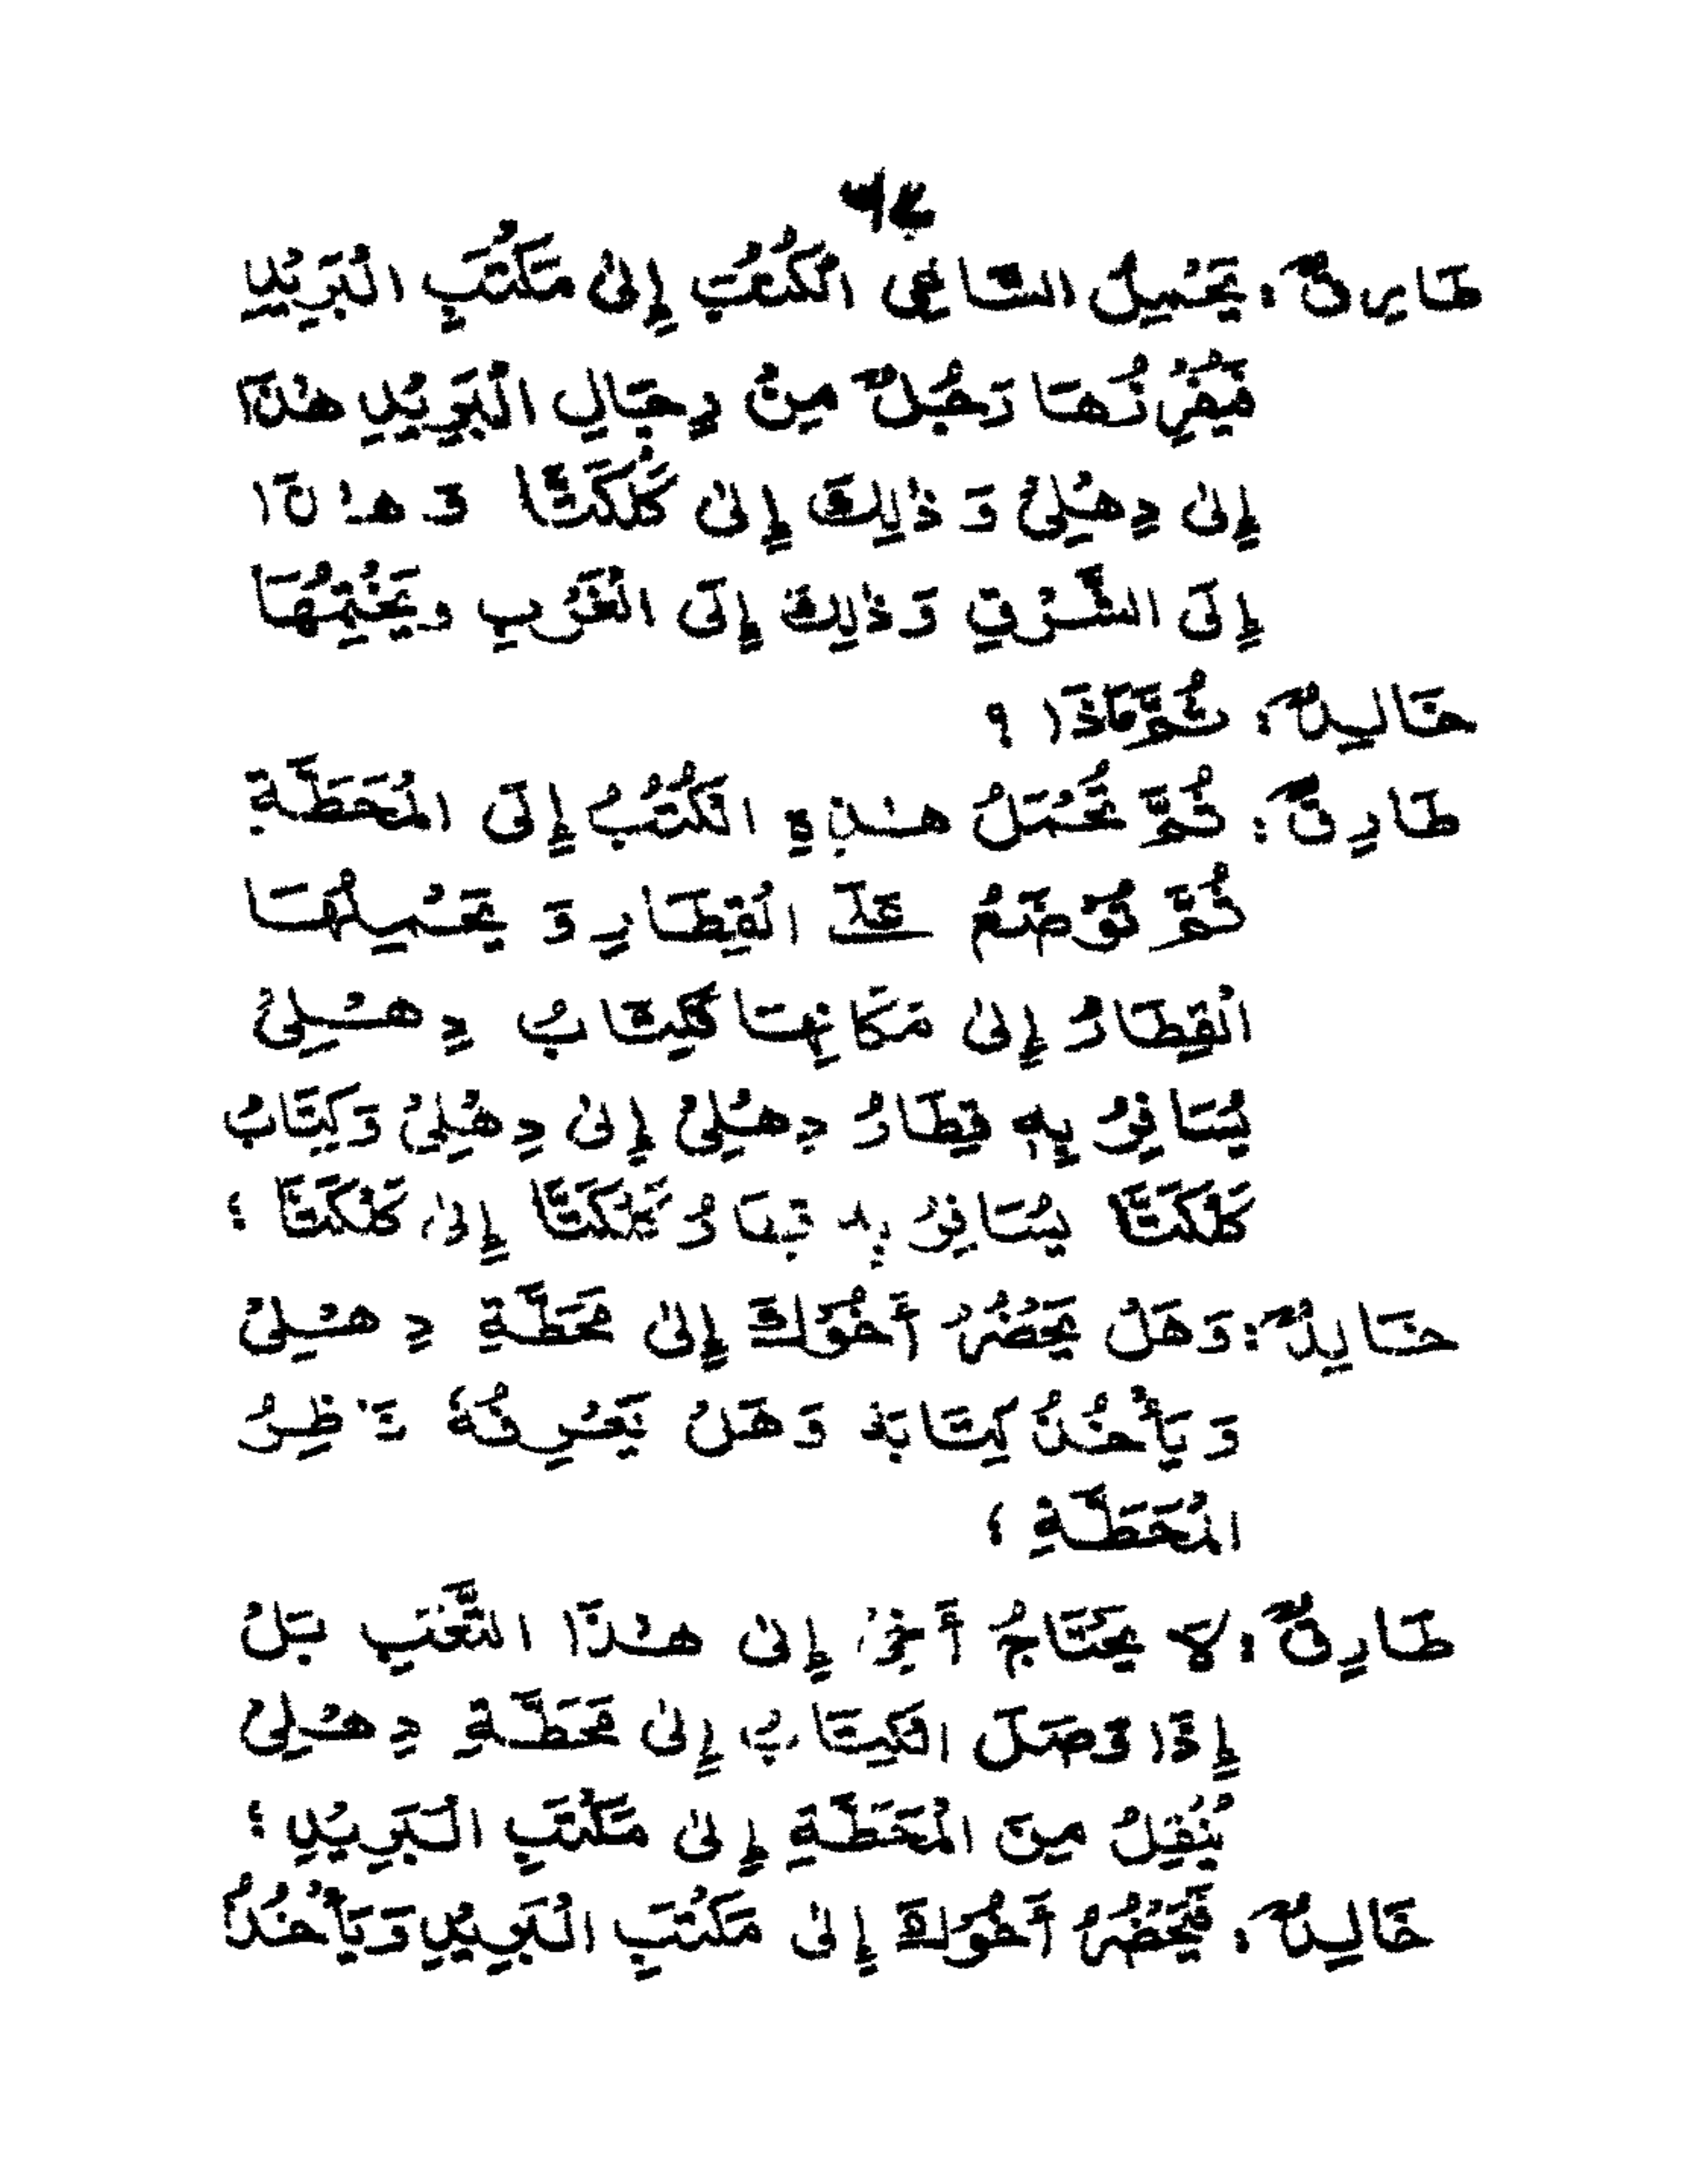 طَارِقٌ: يَحْمِلُ السَّاعِي الْكُتُبَ إِلىٰ مَكْتَبِ الْبَرِيْدِ
فَيُفْرِزُهَا رَجُلٌ مِنْ رِجَالِ الْبَرِيْدِ هٰذَا
إِلىٰ دِهْلِيْ وَ ذٰلِكَ إِلىٰ كَلْكَتَّا وَ هٰذَا
إِلَى الشَّرْقِ وَ ذٰلِكَ إِلَى الْغَرْبِ وَيَخْتِمُهَا
خَالِدٌ: ثُمَّ مَاذَا ؟
طَارِقٌ: ثُمَّ تُحْمَلُ هٰذِهِ الْكُتُبُ إِلَى الْمَحَطَّةِ
ثُمَّ تُوْضَعُ عَلَى الْقِطَارِ وَ يَحْمِلُهَا
الْقِطَارُ إِلىٰ مَكَانِهَا فَكِتَابُ دِهْلِيْ
يُسَافِرُ بِهٖ قِطَارُ دِهْلِيْ إِلىٰ دِهْلِيْ وَكِتَابُ
كَلْكَتَّا يُسَافِرُ بِهٖ قِطَارُ كَلْكَتَّا إِلىٰ كَلْكَتَّا ؛
خَالِدٌ: وَهَلْ يَحْضُرُ أَخُوْكَ إِلىٰ مَحَطَّةِ دِهْلِيْ
وَ يَأْخُذُ كِتَابَهٗ وَهَلْ يَعْرِفُهٗ نَاظِرُ
الْمَحَطَّةِ ؛
طَارِقٌ: لَا يَحْتَاجُ أَخِيْ إِلىٰ هٰذَا التَّعَبِ بَلْ
إِذَا وَصَلَ الْكِتَابُ إِلىٰ مَحَطَّةِ دِهْلِيْ
يُنْقَلُ مِنَ الْمَحَطَّةِ إِلىٰ مَكْتَبِ الْبَرِيْدِ ؛
خَالِدٌ: فَيَحْضُرُ أَخُوْكَ إِلىٰ مَكْتَبِ الْبَرِيْدِ وَيَأْخُذُ